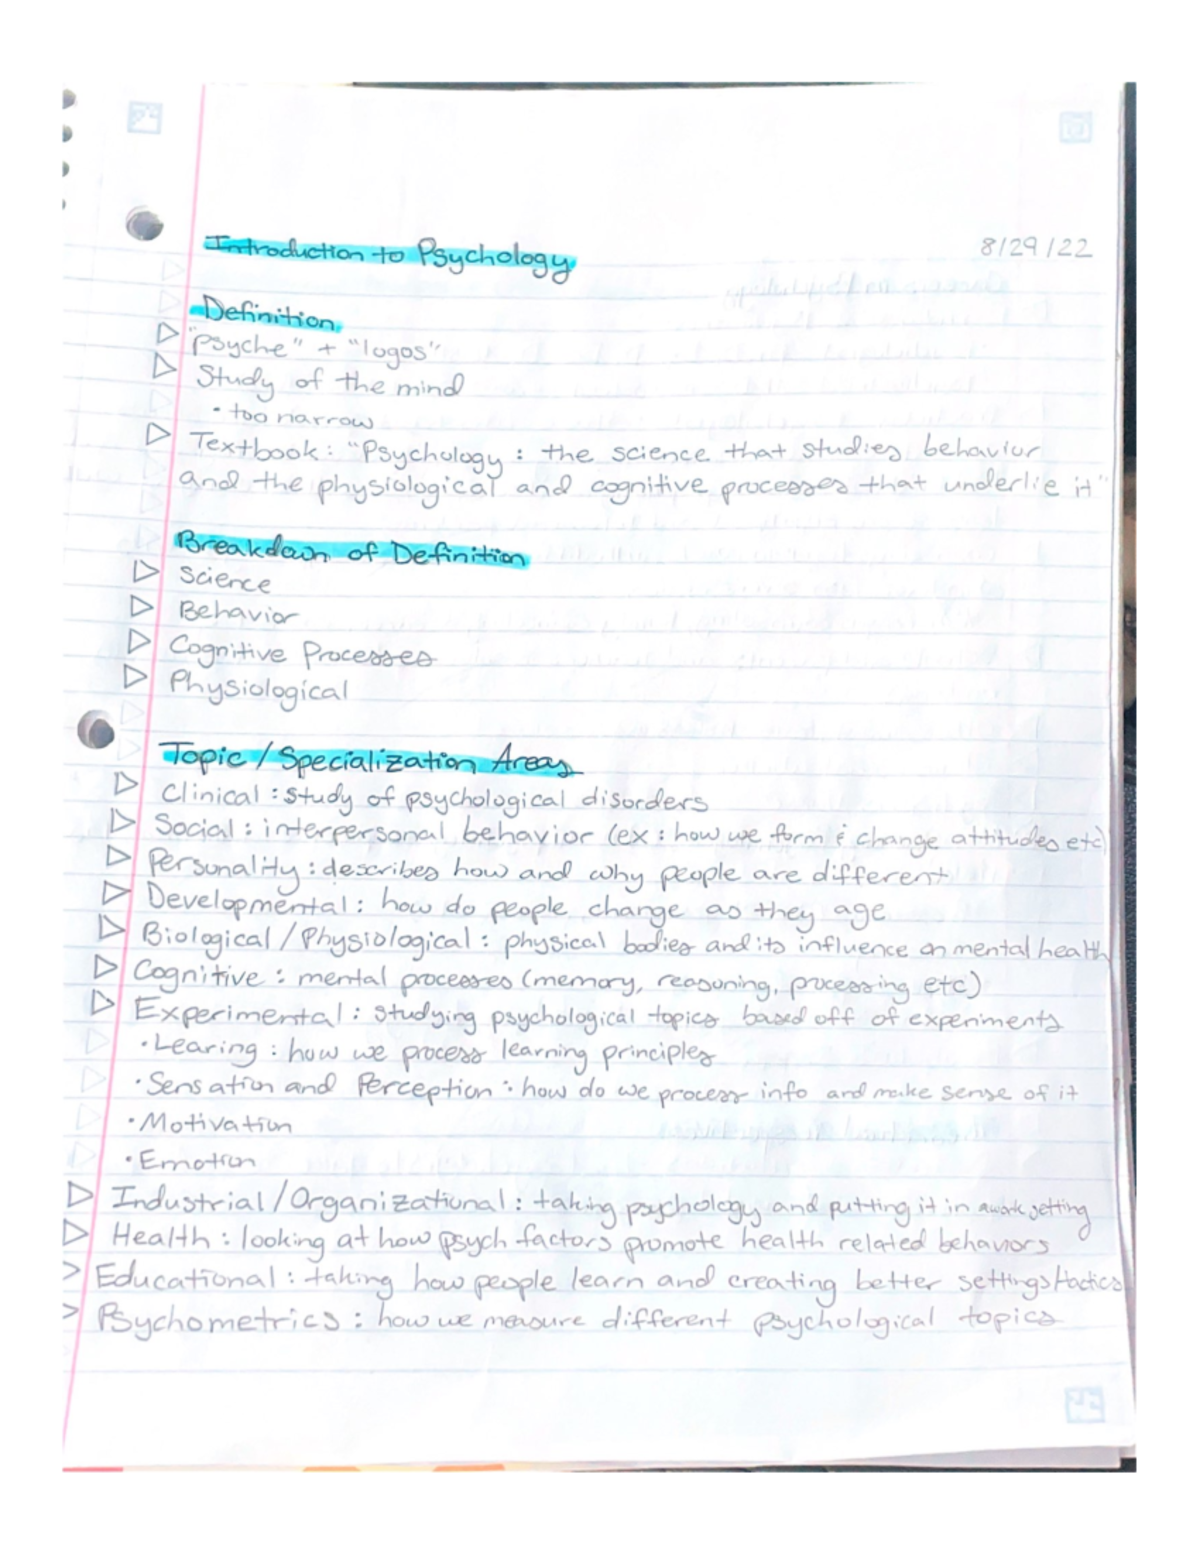 Introduction to Psychology
8/29/22
Definition
"psyche" + "logos"
Study of the mind
• too narrow
Textbook: "Psychology: the science that studies behavior
and the physiological and cognitive processes that underlie it"
Breakdown of Definition
Science
Behavior
Cognitive Processes
Physiological
Topic / Specialization Areas
Clinical: study of psychological disorders
Social: interpersonal behavior (ex: how we form & change attitudes etc)
Personality: describes how and why people are different
Developmental: how do people change as they age
Biological / Physiological: physical bodies and its influence on mental health
Cognitive: mental processes (memory, reasoning, processing etc)
Experimental: studying psychological topics based off of experiments
• Learing: how we process learning principles
• Sensation and Perception: how do we process info and make sense of it
• Motivation
• Emotion
Industrial / Organizational: taking psychology and putting it in a work setting
Health: looking at how psych factors promote health related behaviors
Educational: taking how people learn and creating better settings/tactics
Psychometrics: how we measure different psychological topics